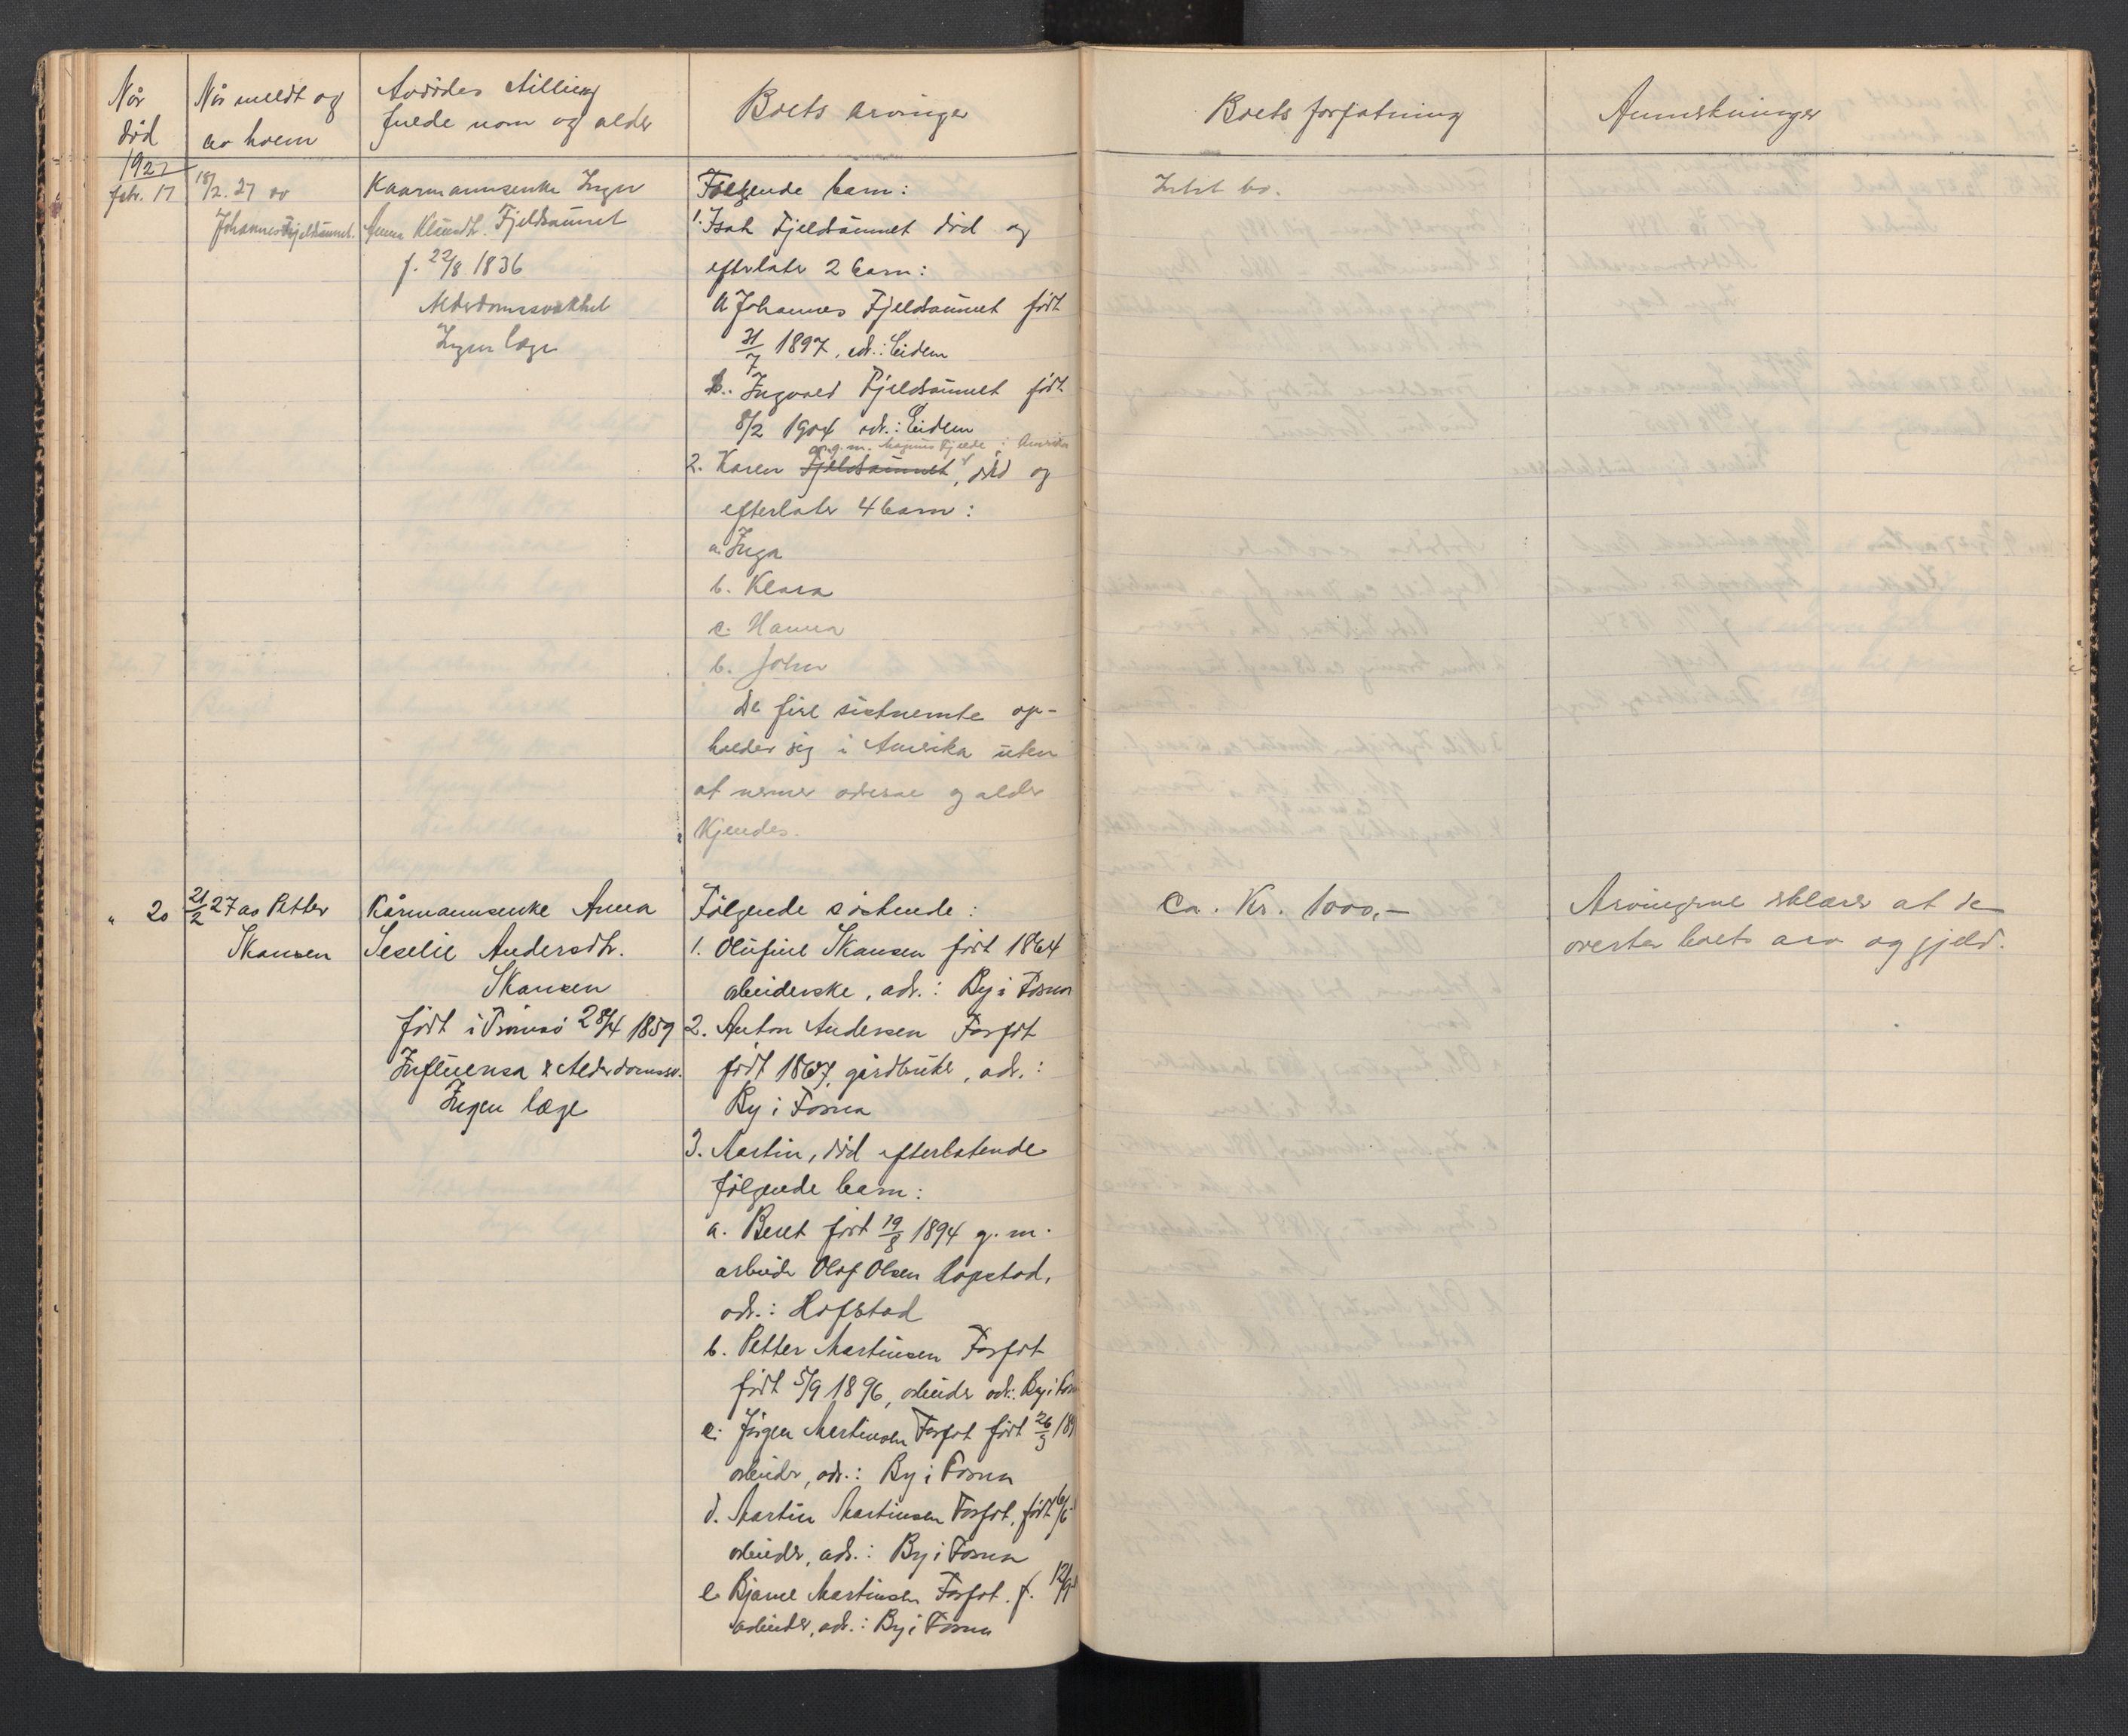 Når
død
Når meldt og
av hvem
Avdødes stilling
fulde navn og alder
Boets arvinger
Boets forfatning
Anmerkninger
1927
febr. 17
18/2. 27 av
Johannes Fjeldsaunet.
Kaarmannsenke Inger
Anna Klausdtr. Fjeldsaunet
f. 22/8 1836
Alderdomssvakhet
Ingen læge
Følgende barn:
1. Isak Fjeldsaunet død og
efterlater 2 barn:
a Johannes Fjeldsaunet født
31/7 1897, adr.: Eidem
b. Ingvald Fjeldsaunet født
8/2 1904 adr.: Eidem
g.m. Magnus Fjelde i Amerika
2. Karen Fjeldsaunet, død og
efterlater 4 barn:
a. Inga
b. Klara
c. Hanna
b. John
De fire sistnemte op-
holder sig i Amerika uten
at nermer adresse og alder
kjendes.
Intet bo.
" 20
21/2 27 av Petter
Skansen
Kårmannsenke Anna
Seselie Andersdtr.
Skansen
født i Tromsö 28/4 1859
Influensa & Alderdomssv.
Ingen læge
Følgende söskende:
1. Olufine Skansen født 1864
arbeiderske, adr.: By i Fosna
2. Anton Andersen Forfot
født 1867, gårdbruker, adr.:
By i Fosna
3. Martin, död efterlatende
følgende barn:
a. Beret født 19/8 1894 g. m.
arbeider Olaf Olsen Hopstad,
adr.: Hofstad
b. Petter Martinsen Forfot
født 5/9 1896, arbeider adr.: By i Fosn
c. Jörgen Martinsen Forfot født 26/3 189
arbeider, adr.: By i Fosna
d. Martin Martinsen Forfot, født 6/6
arbeider, adr.: By i Fosna
e Bjarne Martinsen Forfot. f. 12/9
arbeider, adr.: By i Fosna
Ca. Kr. 1000,-
Arvingerne erklærer at de
overtar boets arv og gjeld.